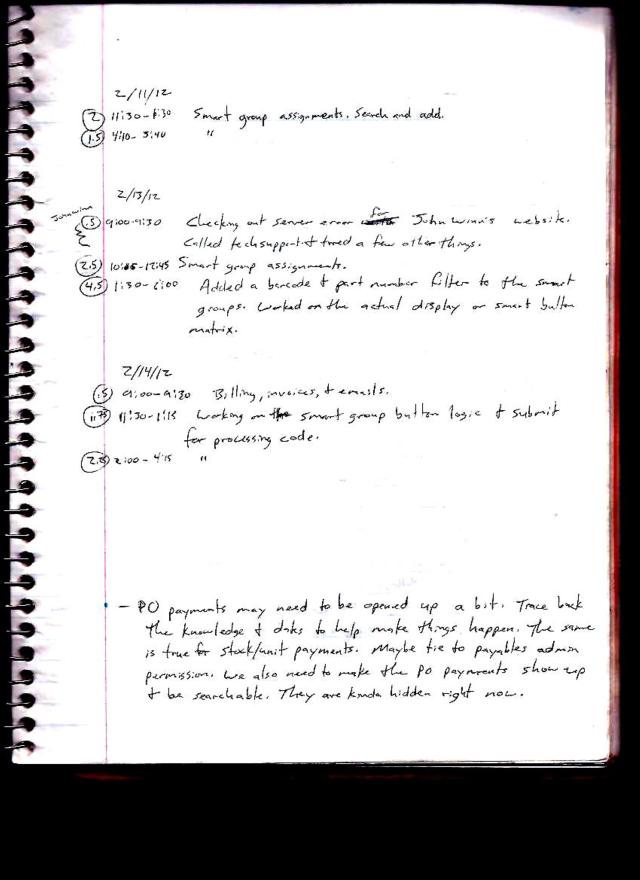 2/11/12
2 11:30-1:30 Smart group assignments. Search and add.
1.5 4:10-5:40 "
2/13/12
John Winn
.5 9:00-9:30 Checking out server error for John Winn's website.
Called tech support & tried a few other things.
2.5 10:15-12:45 Smart group assignments.
4.5 1:30-6:00 Added a barcode & part number filter to the smart
groups. Worked on the actual display or smart button
matrix.
2/14/12
.5 9:00-9:30 Billing, invoices, & emails.
1.75 11:30-1:15 Working on the smart group button logic & submit
for processing code.
2.25 2:00-4:15 "
- PO payments may need to be opened up a bit. Trace back
the knowledge & dots to help make things happen. The same
is true for stock/unit payments. Maybe tie to payables admin
permission. We also need to make the PO payments show up
& be searchable. They are kinda hidden right now.